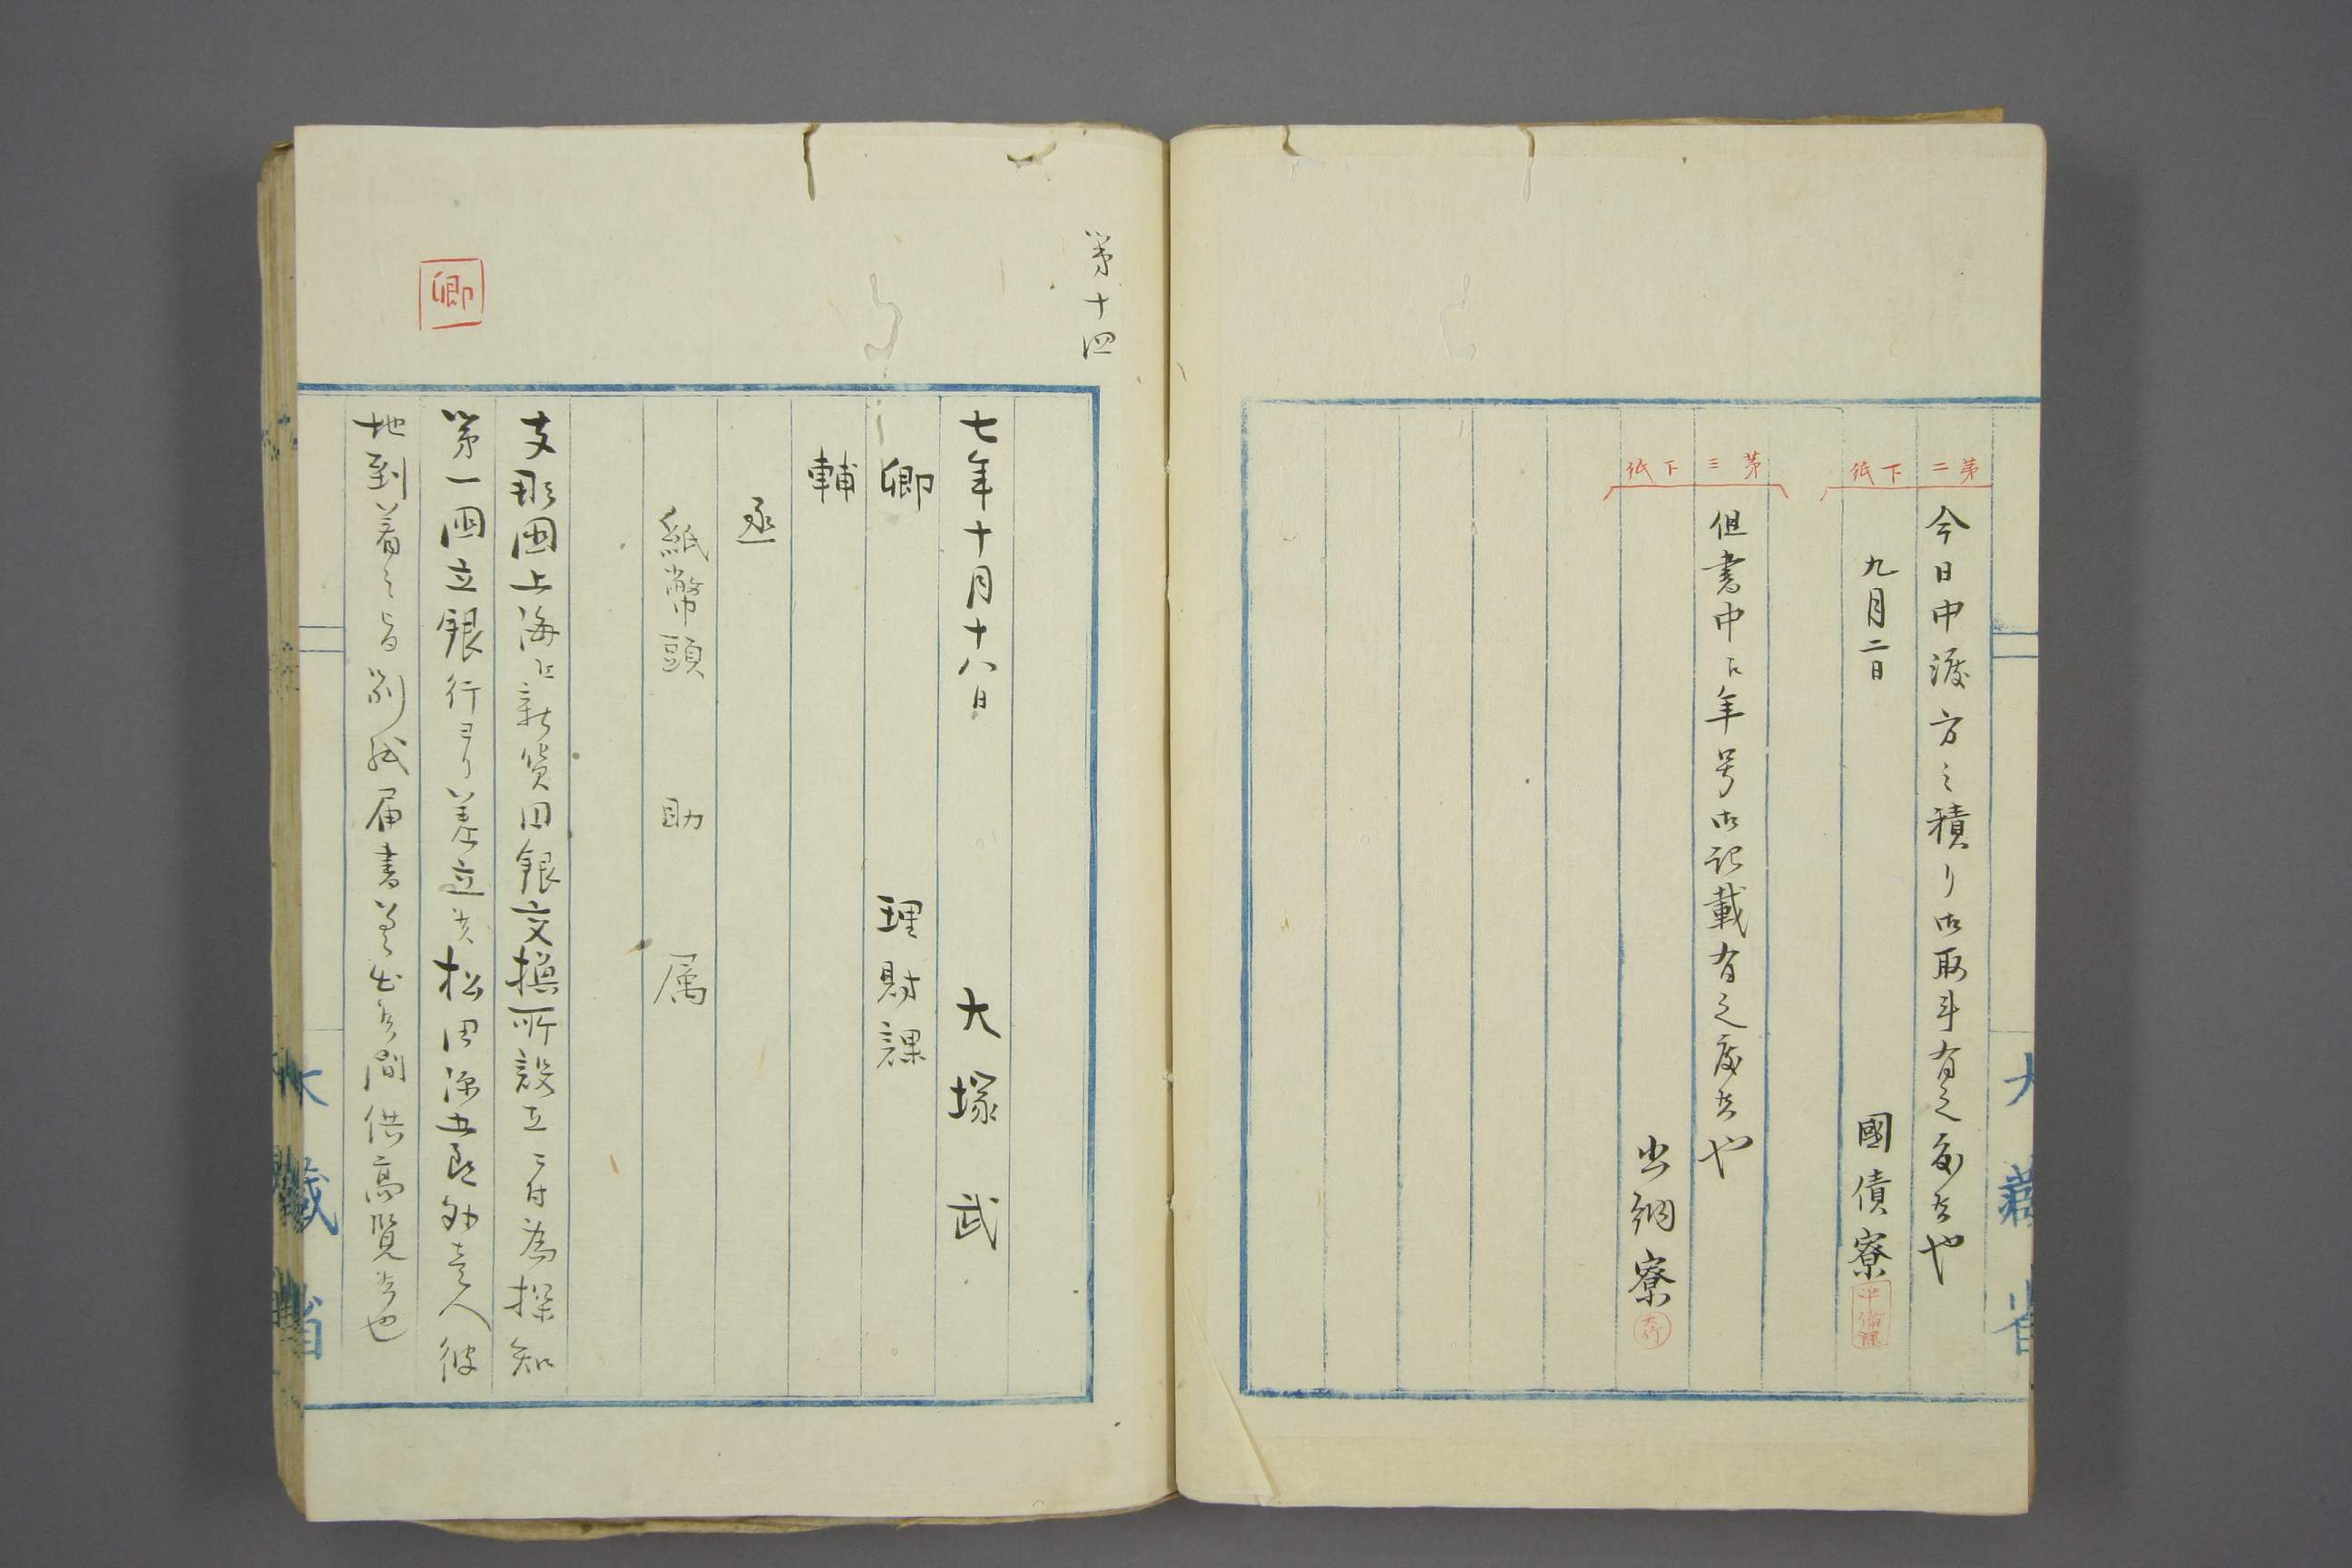 第二下紙
今日中渡方之積リ御取斗有之度候也
九月二日
國債寮
第三下紙
但書中江年号御記載有之度候也
出納寮
大藏省
第十四
七年十月十八日
大塚武
卿
理財課
輔
丞
紙幣頭 助 属
支那國上海江新貨円銀交換所設立ニ付為探知
第一国立銀行ヨリ差立候松田源五郎外壱人彼
地到着之旨別紙届書差出候間供高覧候也
卿
大藏省